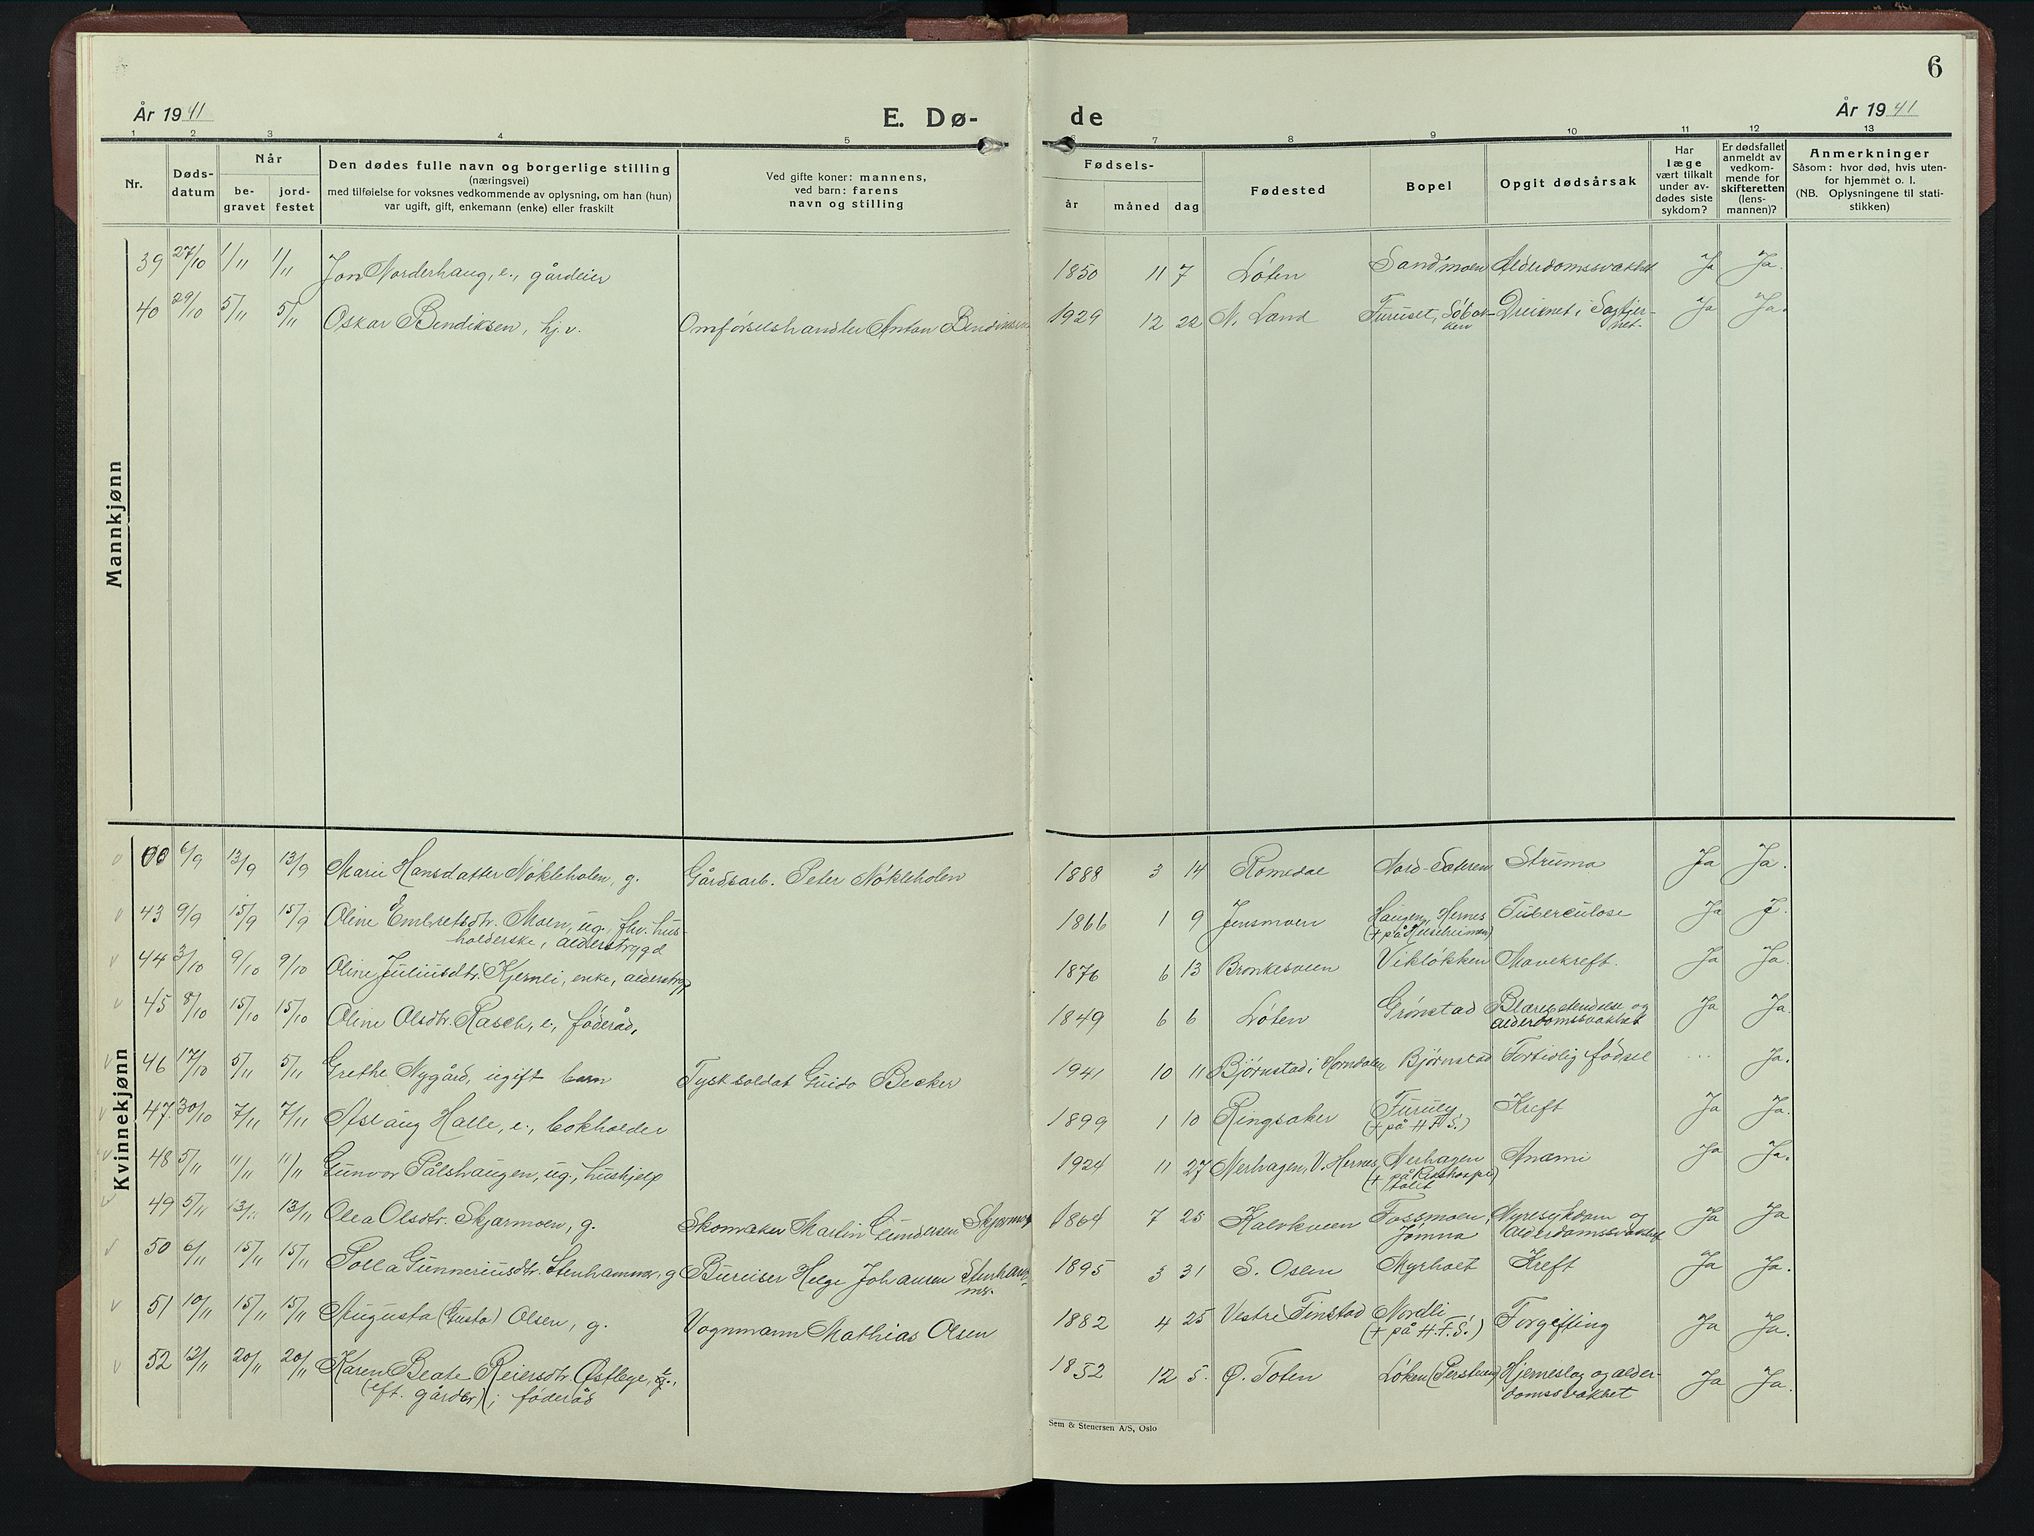 6
År 1941
E. Dø-
de
År 1941
1 2 3 4 5 6 7 8 9 10 11 12 13
Nr.
Døds-
datum
Når
be-
gravet
jord-
festet
Den dødes fulle navn og borgerlige stilling
(næringsvei)
med tilføielse for voksnes vedkommende av oplysning, om han (hun)
var ugift, gift, enkemann (enke) eller fraskilt
Ved gifte koner: mannens,
ved barn: farens
navn og stilling
Fødsels-
år måned dag
Fødested
Bopel
Opgit dødsårsak
Har
læge
vært tilkalt
under av-
dødes siste
sykdom?
Er dødsfallet
anmeldt av
vedkom-
mende for
skifteretten
(lens-
mannen)?
Anmerkninger
Såsom: hvor død, hvis uten-
for hjemmet o. l.
(NB. Oplysningene til stati-
stikken)
Mannkjønn
39 27/10 1/11 1/11 Jon Norderhaug, e., gårdeier 1850 11 7 Løten Sandmoen Alderdomssvakhet Ja Ja.
40 29/10 5/11 5/11 Oskar Bendiksen, hj.v. Omførselshandler Anton Bendiksen 1929 12 22 N. Land Furuset, Druknet i Sagtjer- Ja Ja.
net.
Kvinnekjønn
6/9 13/9 13/9 Marie Hansdatter Nøkleholen, g. Gårdsarb. Peter Nøkleholen 1888 3 14 Romedal Nord-Sæteren Struma Ja Ja.
43 9/9 15/9 15/9 Oline Embretsdtr. Moen, ug., fhv. hus- 1866 1 9 Jensmoen Haugen, Hernes Tuberculose Ja J.
holderske, alderstrygd
44 3/10 9/10 9/10 Oline Juliusdtr. Kjernli, enke, alderstryg 1876 6 13 Bronkesveen Vikløkken Mavekreft. Ja Ja.
45 8/10 15/10 15/10 Oline Olsdtr. Rasch, e., føderåd, 1849 6 6 Løten Grønstad Blærebetendelse og Ja Ja.
alderdomssvakhet
46 17/10 5/11 5/11 Grethe Nygård, ugift barn Tysk soldat Guido Becker 1941 10 11 Bjørnstad i Horndalen Bjørnstad Fortidlig fødsel ... Ja.
47. 30/10 7/11 7/11 Aslaug Halle, e., bokholder 1899 1 10 Ringsaker Furuly, Kreft Ja Ja.
(+ på H.F.S.)
48 5/11 11/11 11/11 Gunvor Pålshaugen, ug., hushjelp 1924 11 27 Nerhagen, V. Hernes, Nerhagen Anæmi Ja Ja.
(+ på Rikshospi-
talet)
49 5/11 13/11 13/11 Olea Olsdtr. Skjærmoen, g. Skomaker Martin Gundersen Skjærmo 1864 7 25 Kalvkveen Fossmoen, Nyresykdom og Ja Ja
Jømna alderdomssvakhet
50 6/11 15/11 15/11 Polla Gunneriusdtr. Stenhammer, g Bureiser Helge Johansen Stenham- 1895 3 31 S. Osen Myrholt Kreft Ja Ja.
mer.
51 10/11 15/11 15/11 Augusta (Gusta) Olsen, g. Vognmann Mathias Olsen 1882 4 25 Vestre Finstad Nordli Forgifting Ja Ja.
(+ på H.F.S.)
52 12/11 20/11 20/11 Karen Beate Reiersdtr. Østlege, 1852 12 5. Ø. Toten Løken Hjerneslag og alder- Ja Ja.
(eft. gårdbr.) i føderåd domssvakhet
Sem & Stenersen A/S, Oslo